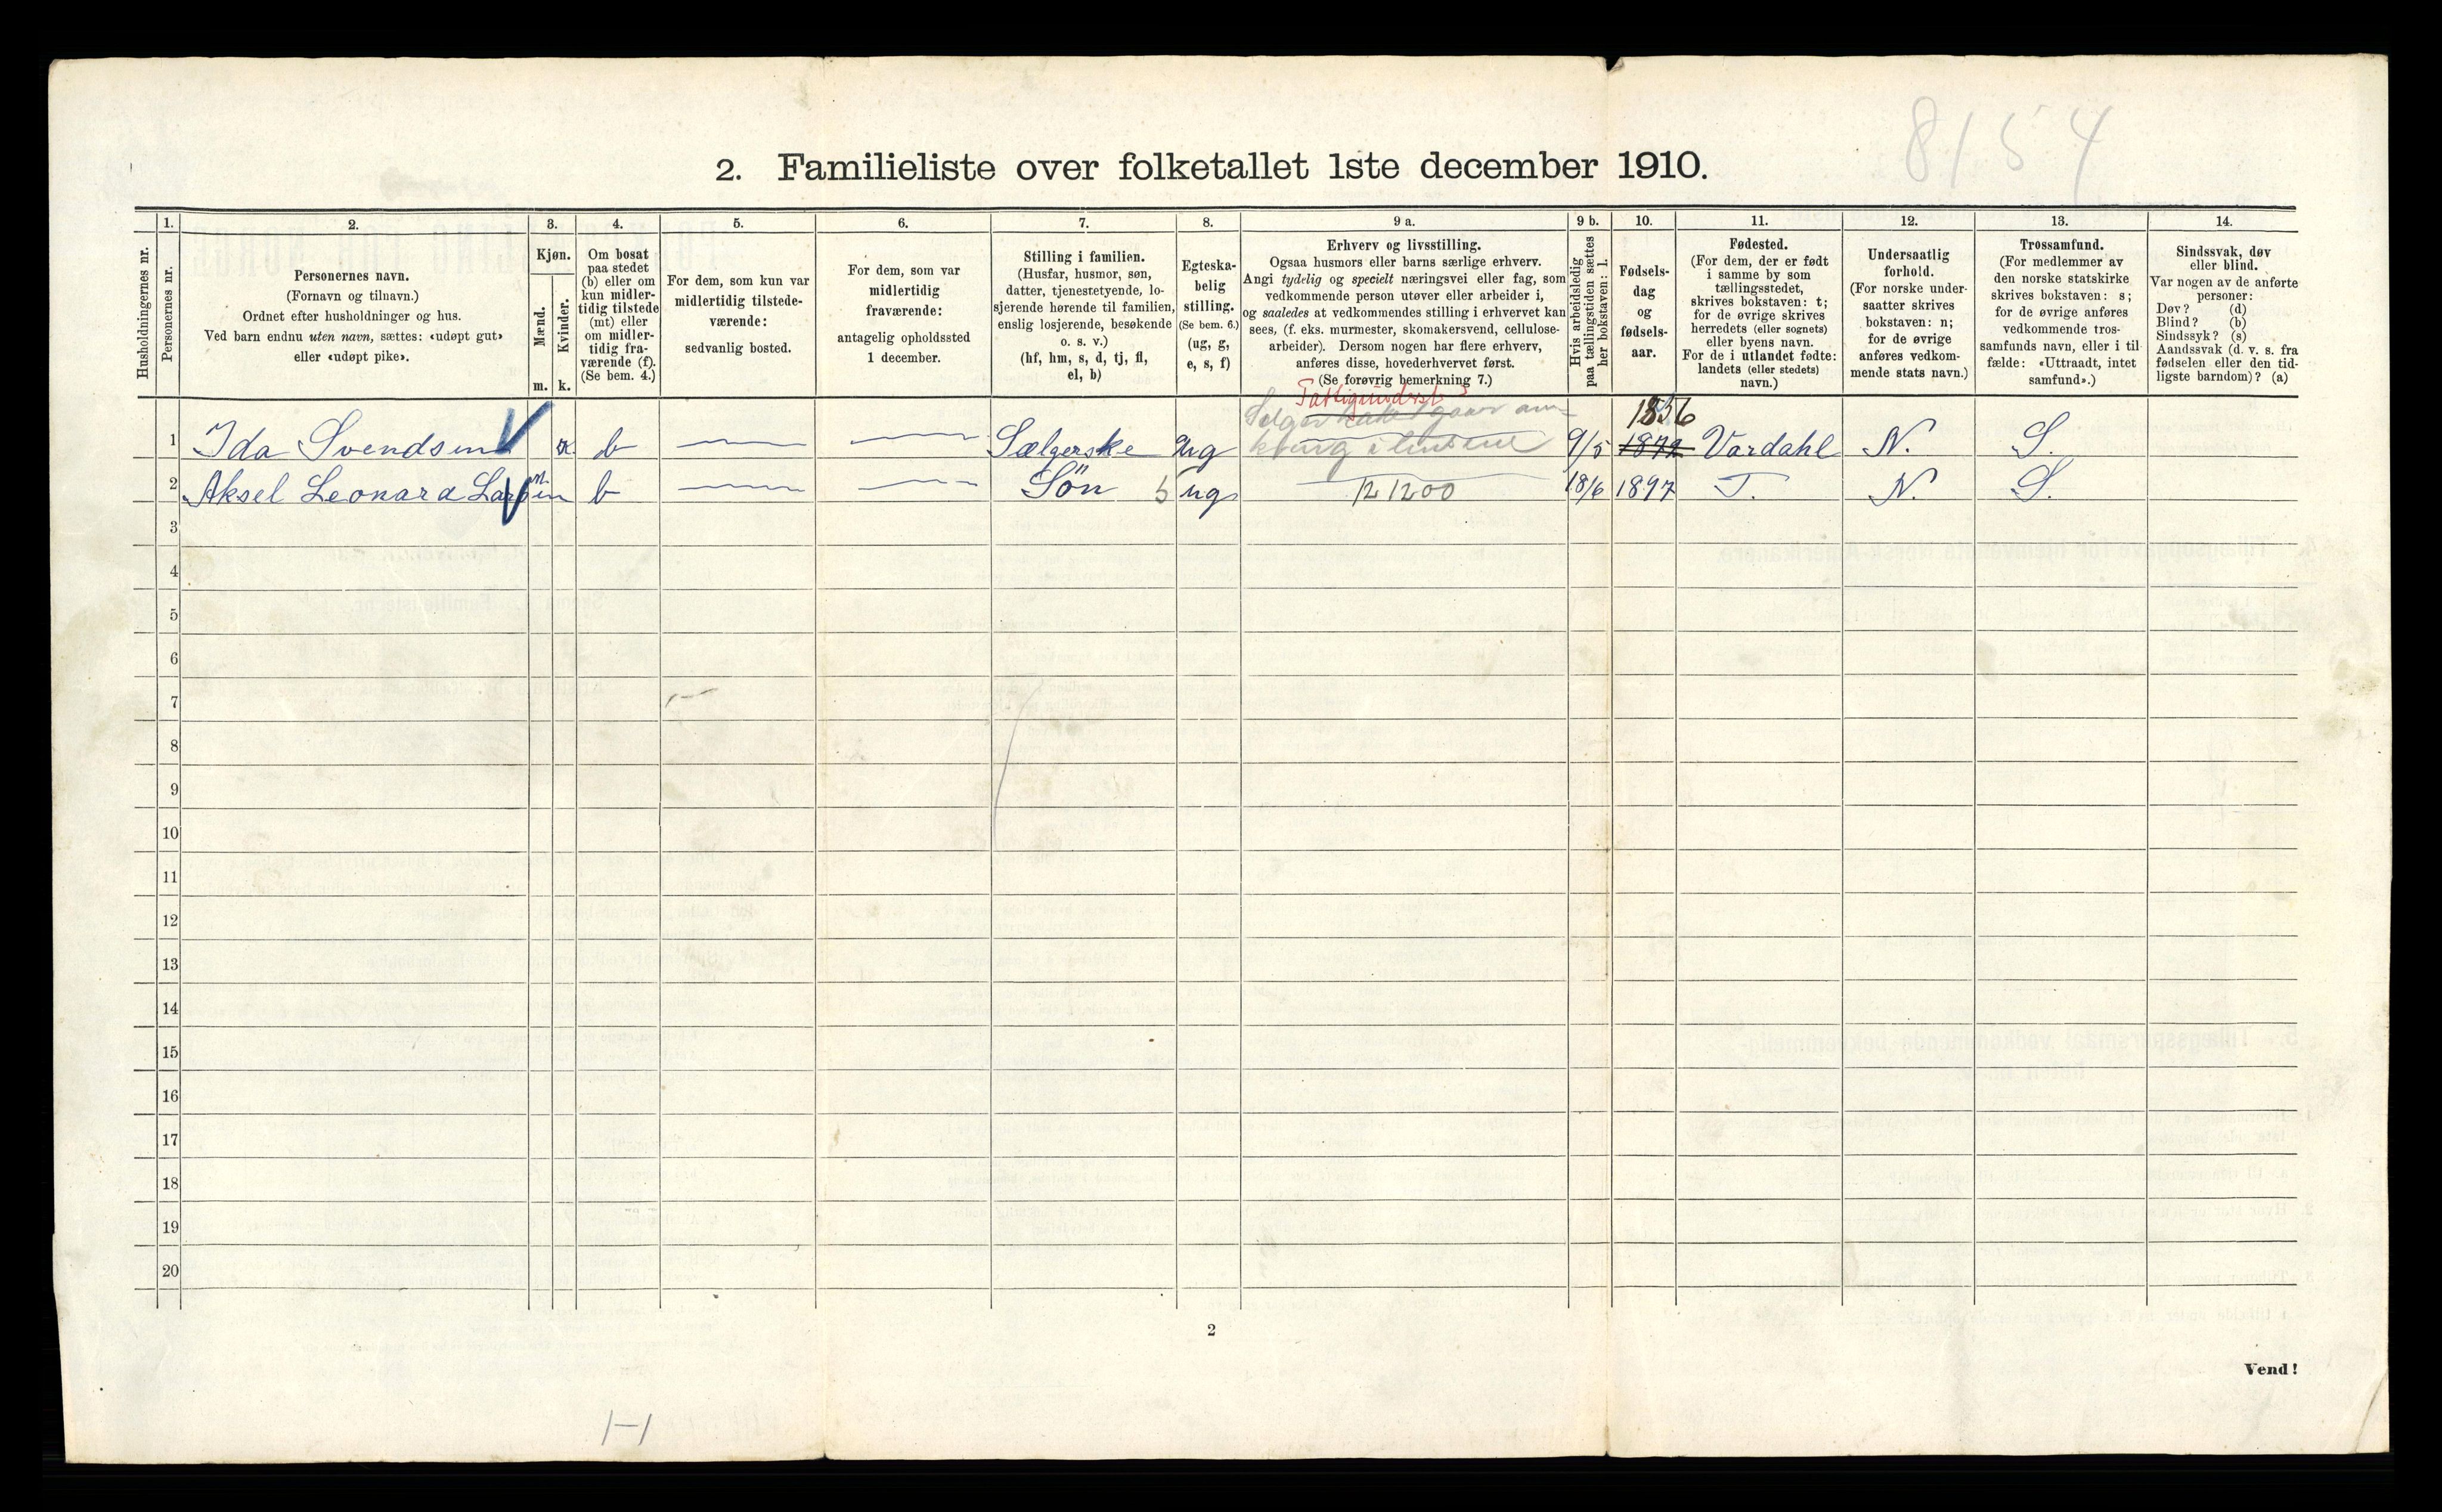 8154
2. Familieliste over folketallet 1ste december 1910.
1. 2. 3. 4. 5. 6. 7. 8. 9 a. 9 b. 10. 11. 12. 13. 14.
Husholdningernes nr.
Personernes nr.
Personernes navn.
(Fornavn og tilnavn.)
Ordnet efter husholdninger og hus.
Ved barn endnu uten navn, sættes: «udøpt gut»
eller «udøpt pike».
Kjøn.
Mænd.
Kvinder.
m. k.
Om bosat
paa stedet
(b) eller om
kun midler-
tidig tilstede
(mt) eller
om midler-
tidig fra-
værende (f).
(Se bem. 4.)
For dem, som kun var
midlertidig tilstede-
værende:
sedvanlig bosted.
For dem, som var
midlertidig
fraværende:
antagelig opholdssted
1 december.
Stilling i familien.
(Husfar, husmor, søn,
datter, tjenestetyende, lo-
sjerende hørende til familien,
enslig losjerende, besøkende
o. s. v.)
(hf, hm, s, d, tj, fl,
el, b)
Egteska-
belig
stilling.
(Se bem. 6.)
(ug, g,
e, s, f)
Erhverv og livsstilling.
Ogsaa husmors eller barns særlige erhverv.
Angi tydelig og specielt næringsvei eller fag, som
vedkommende person utøver eller arbeider i,
og saaledes at vedkommendes stilling i erhvervet kan
sees, (f. eks. murmester, skomakersvend, cellulose-
arbeider). Dersom nogen har flere erhverv,
anføres disse, hovederhvervet først.
(Se forøvrig bemerkning 7.)
Hvis arbeidsledig
paa tællingstiden sættes
her bokstaven: l.
Fødsels-
dag
og
fødsels-
aar.
Fødested.
(For dem, der er født
i samme by som
tællingsstedet,
skrives bokstaven: t;
for de øvrige skrives
herredets (eller sognets)
eller byens navn.
For de i utlandet fødte:
landets (eller stedets)
navn.)
Undersaatlig
forhold.
(For norske under-
saatter skrives
bokstaven: n;
for de øvrige
anføres vedkom-
mende stats navn.)
Trossamfund.
(For medlemmer av
den norske statskirke
skrives bokstaven: s;
for de øvrige anføres
vedkommende tros-
samfunds navn, eller i til-
fælde: «Uttraadt, intet
samfund».)
Sindssvak, døv
eller blind.
Var nogen av de anførte
personer:
Døv? (d)
Blind? (b)
Sindssyk? (s)
Aandssvak (d. v. s. fra
fødselen eller den tid-
ligste barndom)? (a)
1856
1 Ida Svendsen k b Sælgerske ug 9/5 1872 Vardahl N. S.
2 Aksel Leonard Larsen m b Sön s ug 21200 18/6 1897 T. N. S.
3
4
5
6
7
8
9
10
11
12
13
14
15
16
17
18
19
20
2
Vend!